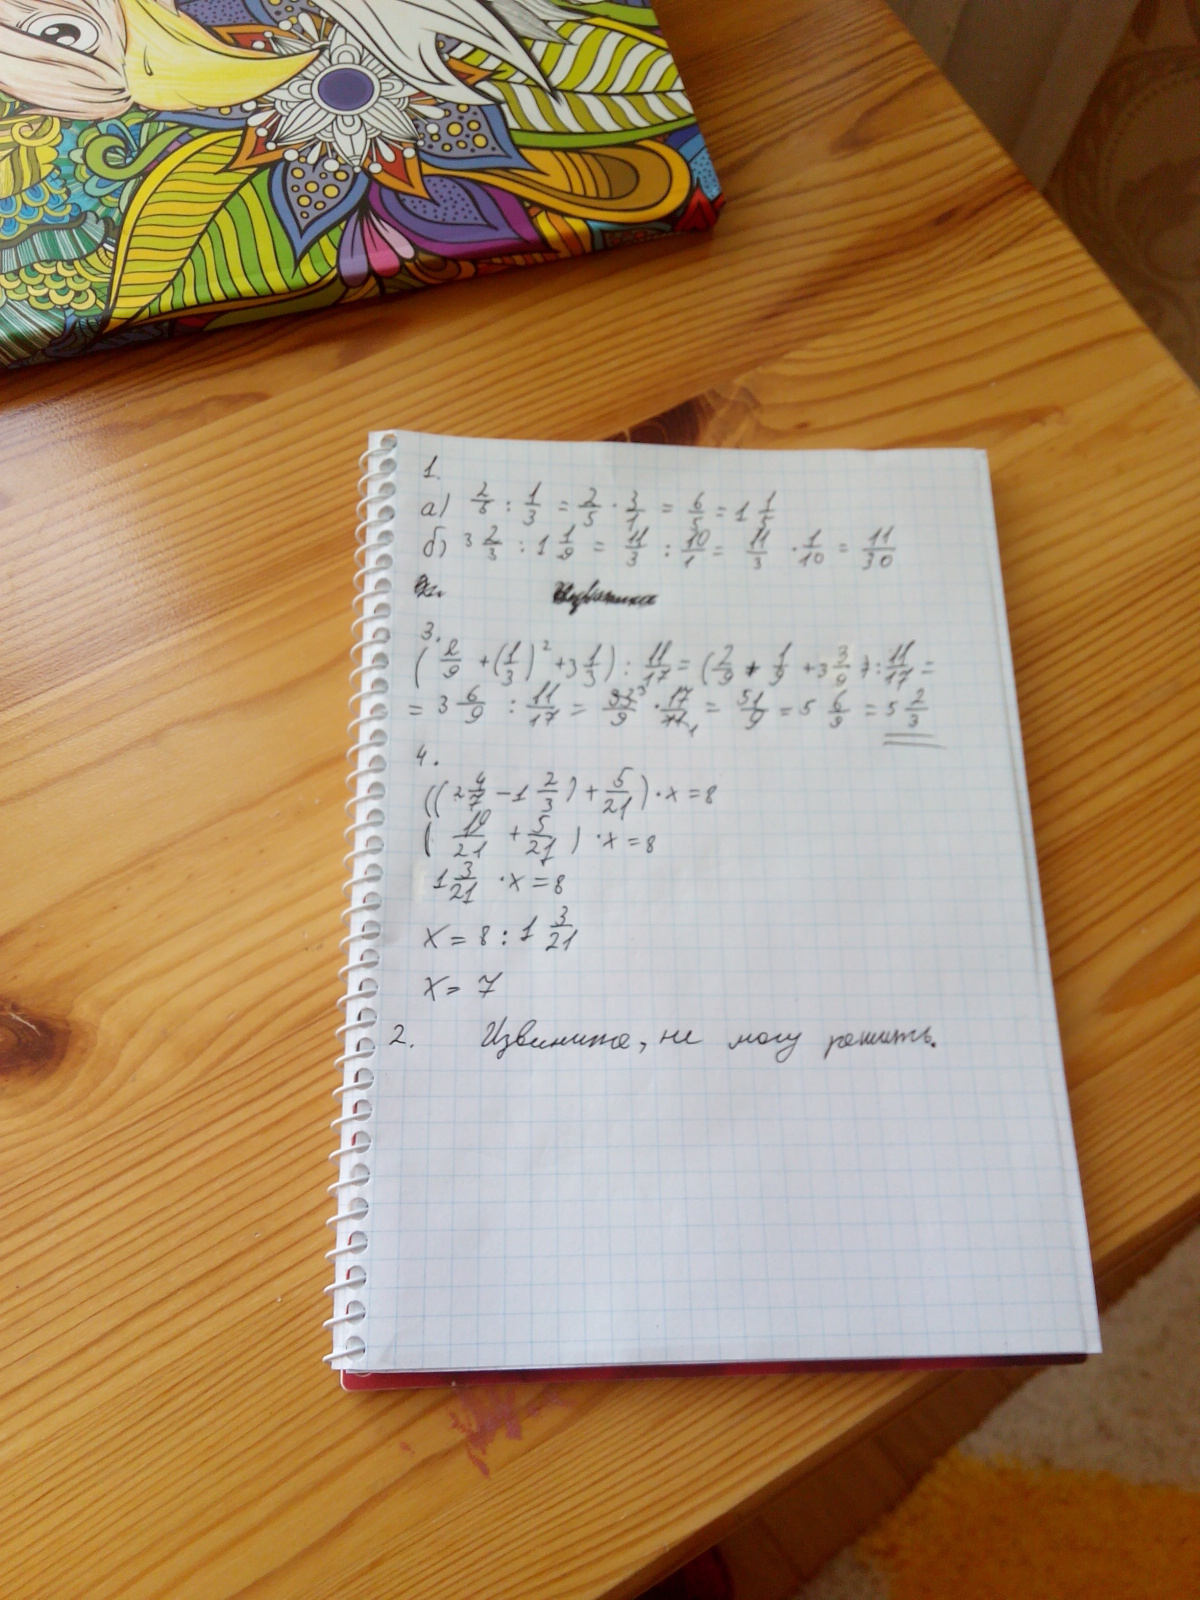 1.
а) 2/5 : 1/3 = 2/5 · 3/1 = 6/5 = 1 1/5
б) 3 2/3 : 1 1/9 = 11/3 : 10/1 = 11/3 · 1/10 = 11/30
3.
(2/9 + (1/3)² + 3 1/3) : 11/17 = (2/9 + 1/9 + 3 3/9) : 11/17 =
= 3 6/9 : 11/17 = 33³/9 · 17/11₁ = 51/9 = 5 6/9 = 5 2/3
4.
((2 4/7 - 1 2/3) + 5/21) · x = 8
(19/21 + 5/21) · x = 8
1 3/21 · x = 8
x = 8 : 1 3/21
x = 7
2. Извините, не могу решить.